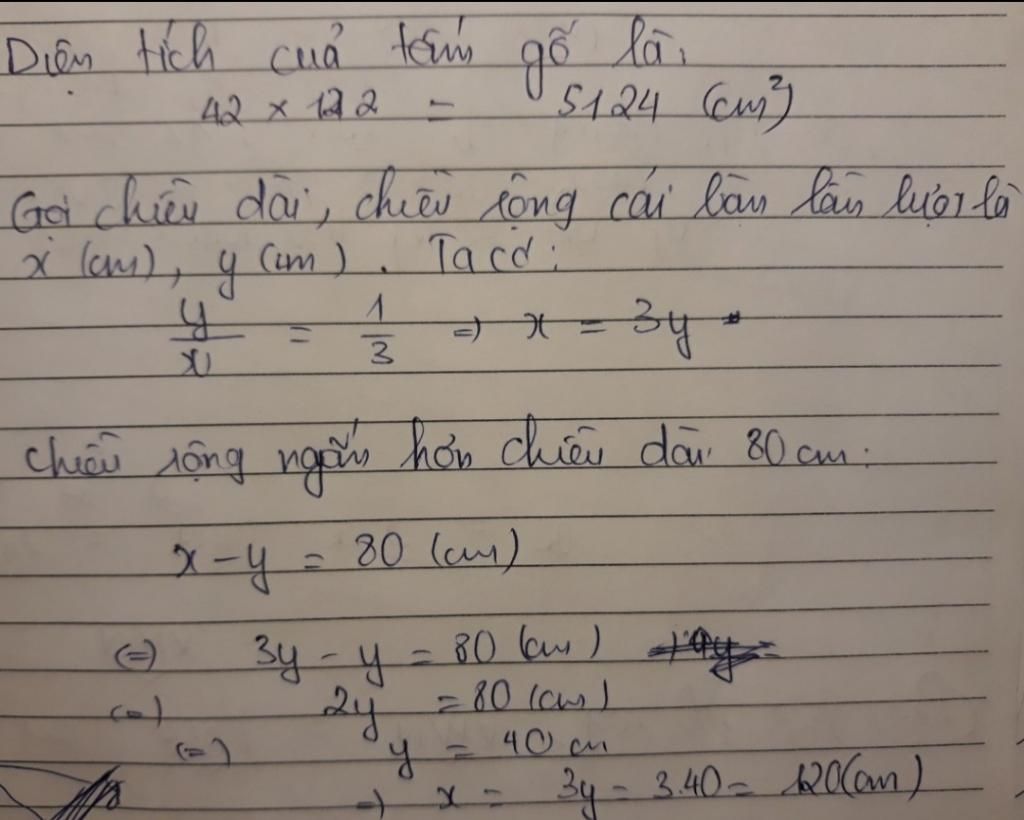 Diện tích cuả tấm gỗ là:
42 x 122 = 5124 (cm²)
Gọi chiều dài, chiều rộng cái bàn lần lượt là
x (cm), y (cm). Ta có:
y/x = 1/3 => x = 3y
Chiều rộng ngắn hơn chiều dài 80 cm:
x - y = 80 (cm)
(=) 3y - y = 80 (cm)
(=) 2y = 80 (cm)
(=) y = 40 cm
=> x = 3y = 3.40 = 120 (cm)